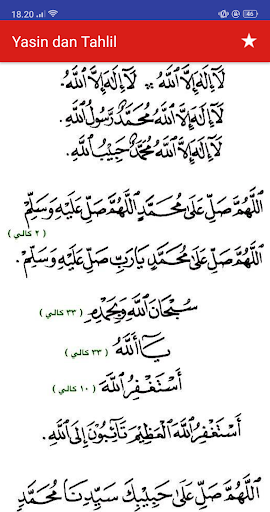 18.20
46
Yasin dan Tahlil
لَآ إِلٰهَ إِلَّا اللّٰهُ ۞ لَآ إِلٰهَ إِلَّا اللّٰهُ.
لَآ إِلٰهَ إِلَّا اللّٰهُ مُحَمَّدٌ رَّسُوْلُ اللّٰهِ.
لَآ إِلٰهَ إِلَّا اللّٰهُ مُحَمَّدٌ حَبِيْبُ اللّٰهِ.
اَللّٰهُمَّ صَلِّ عَلٰى مُحَمَّدٍ اَللّٰهُمَّ صَلِّ عَلَيْهِ وَسَلِّمْ
( ٢ كالي )
اَللّٰهُمَّ صَلِّ عَلٰى مُحَمَّدٍ يَا رَبِّ صَلِّ عَلَيْهِ وَسَلِّمْ.
سُبْحَانَ اللّٰهِ وَبِحَمْدِهِ ( ٣٣ كالي )
يَا اَللّٰهُ ( ٣٣ كالي )
أَسْتَغْفِرُ اللّٰهَ ( ١٠ كالي )
أَسْتَغْفِرُ اللّٰهَ الْعَظِيْمَ تَآئِبُوْنَ إِلَى اللّٰهِ.
اَللّٰهُمَّ صَلِّ عَلٰى حَبِيْبِكَ سَيِّدِنَا مُحَمَّدٍ